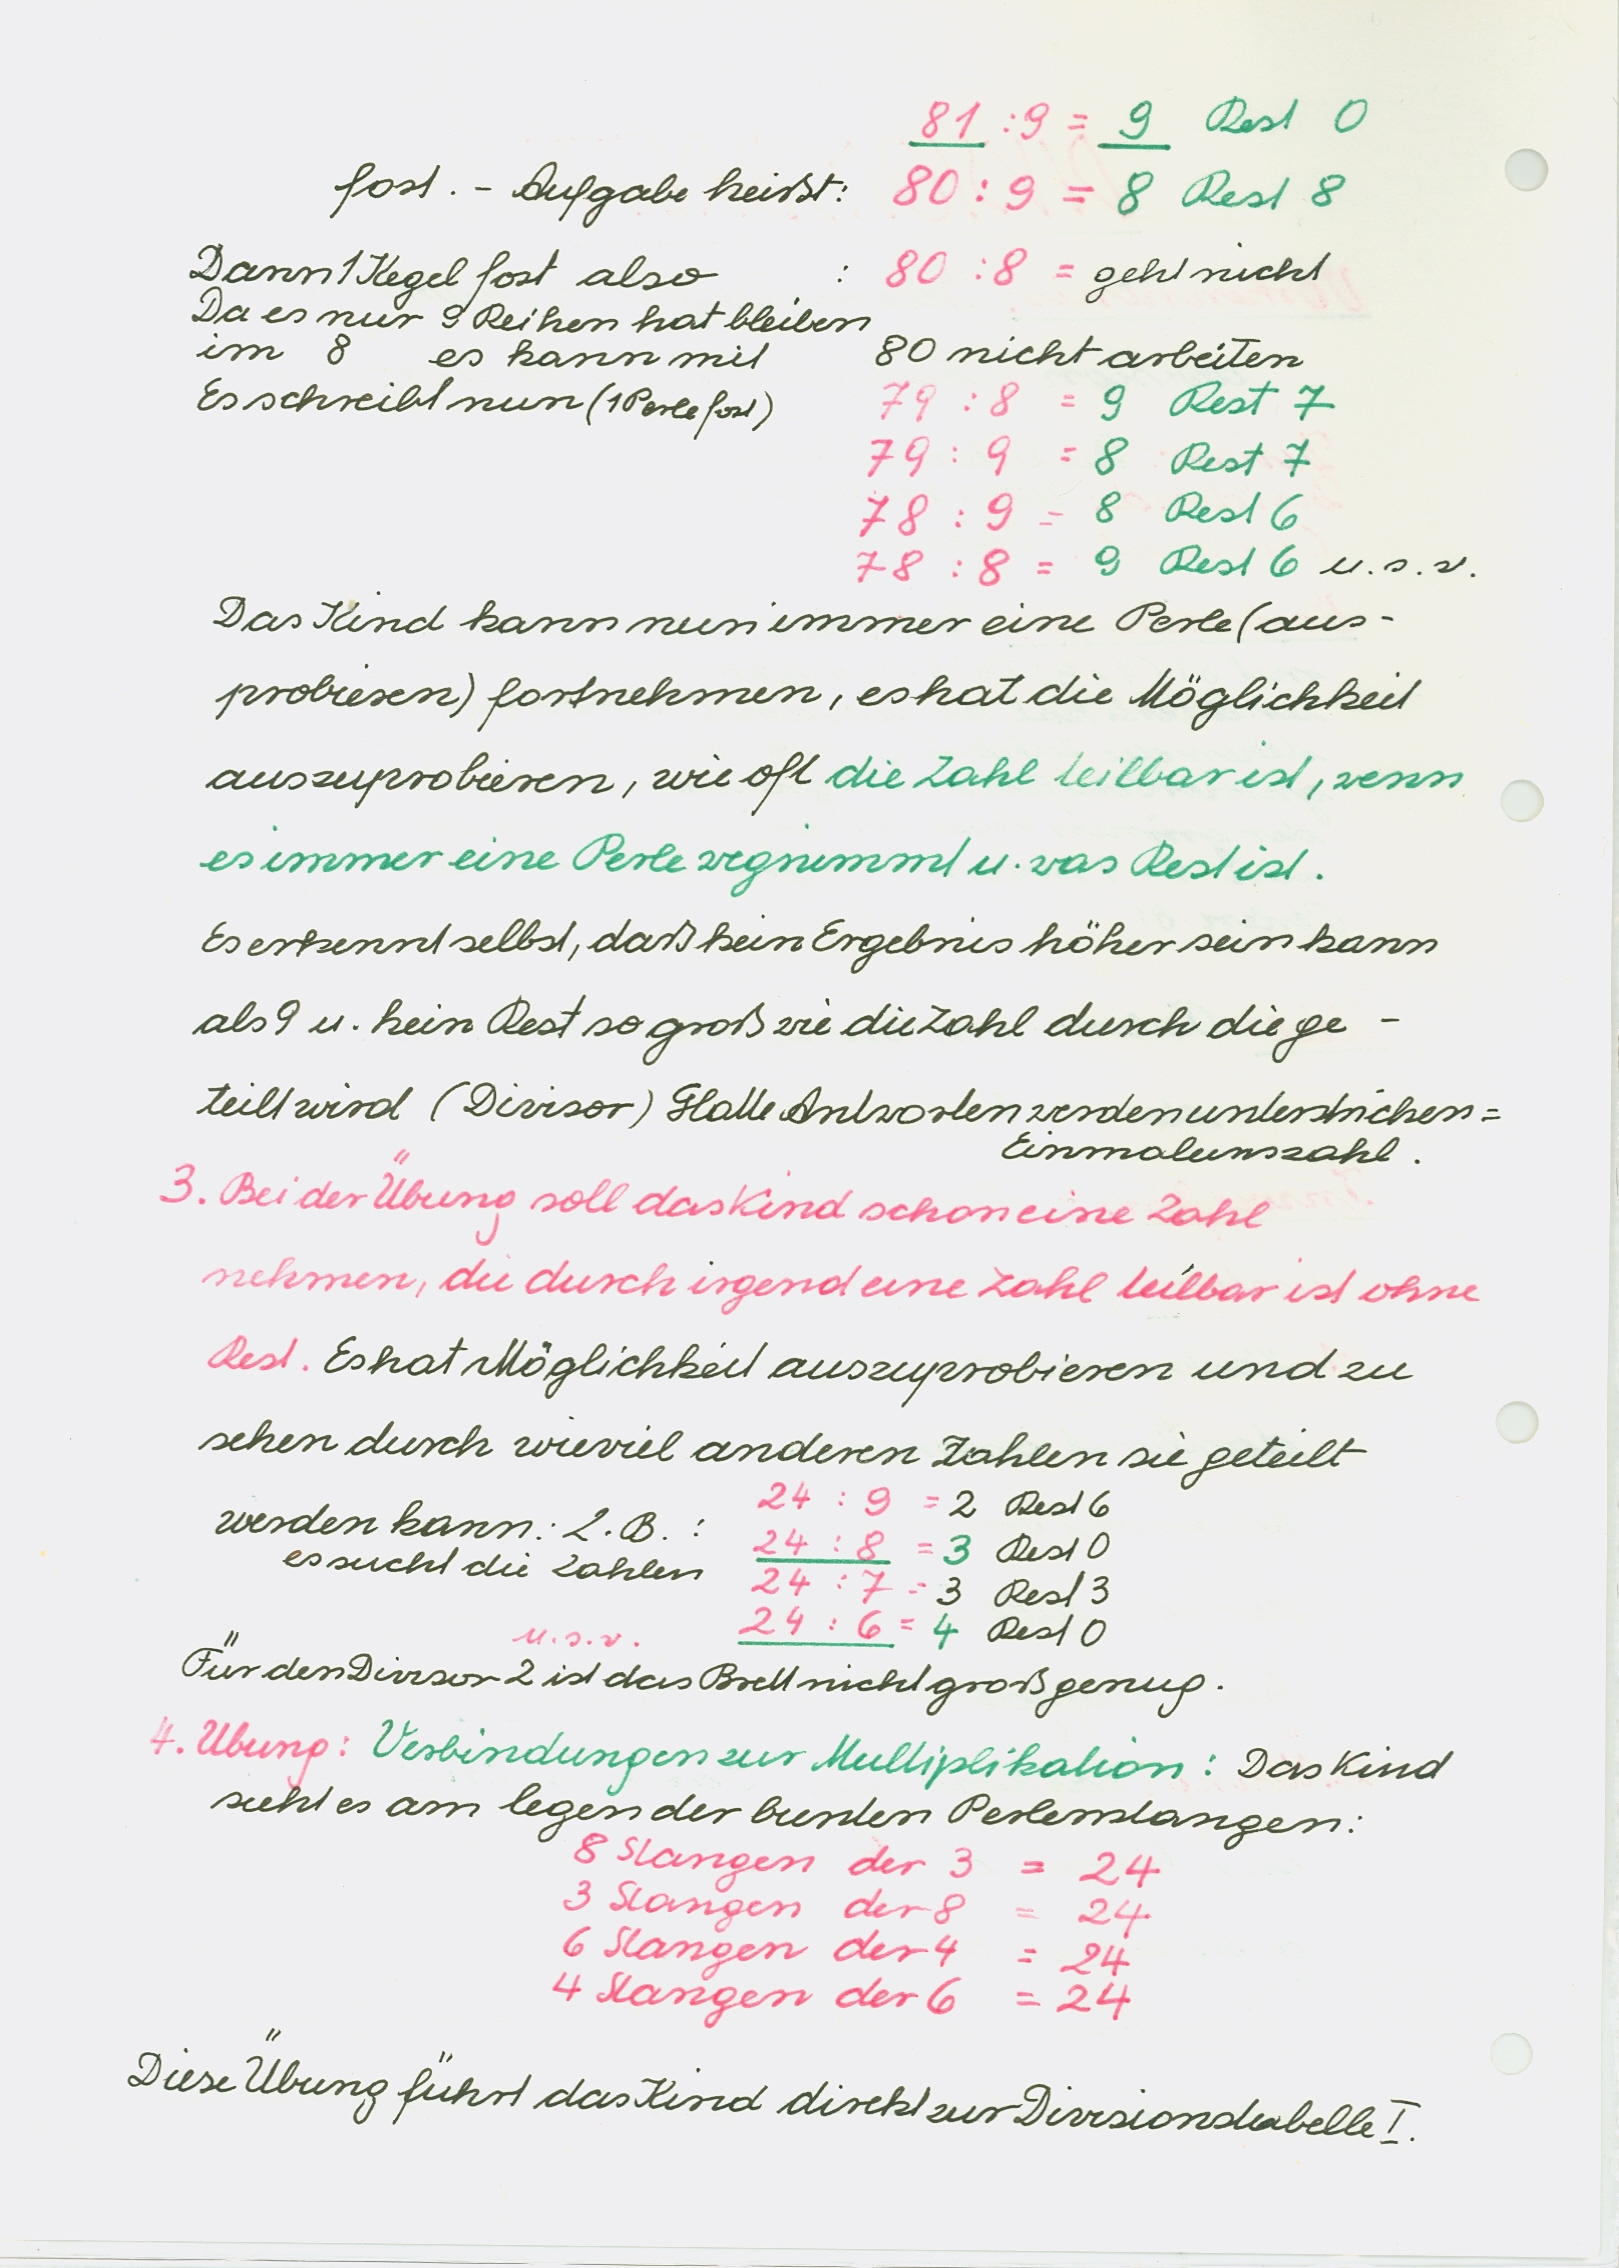 81 : 9 = 9 Rest 0
fort. - Aufgabe heißt: 80 : 9 = 8 Rest 8
Dann 1 Kegel fort also : 80 : 8 = geht nicht
Da es nur 9 Reihen hat bleiben
im 8 es kann mit 80 nicht arbeiten
Es schreibt nun (1 Perle fort) 79 : 8 = 9 Rest 7
79 : 9 = 8 Rest 7
78 : 9 = 8 Rest 6
78 : 8 = 9 Rest 6 u.s.w.
Das Kind kann nun immer eine Perle (aus-
probieren) fortnehmen, es hat die Möglichkeit
auszuprobieren, wie oft die Zahl teilbar ist, wenn
es immer eine Perle wegnimmt u. was Rest ist.
Es erkennt selbst, daß kein Ergebnis höher sein kann
als 9 u. kein Rest so groß wie die Zahl durch die ge-
teilt wird (Divisor) Glatte Antworten werden unterstrichen =
Einmaleinszahl.
3. Bei der Übung soll das Kind schon eine Zahl
nehmen, die durch irgend eine Zahl teilbar ist ohne
Rest. Es hat Möglichkeit auszuprobieren und zu
sehen durch wieviel anderen Zahlen sie geteilt
werden kann: Z.B.: 24 : 9 = 2 Rest 6
es sucht die Zahlen 24 : 8 = 3 Rest 0
24 : 7 = 3 Rest 3
u.s.w. 24 : 6 = 4 Rest 0
Für den Divisor 2 ist das Brett nicht groß genug.
4. Übung: Verbindungen zur Multiplikation: Das Kind
sieht es am legen der bunten Perlenstangen:
8 Stangen der 3 = 24
3 Stangen der 8 = 24
6 Stangen der 4 = 24
4 Stangen der 6 = 24
Diese Übung führt das Kind direkt zur Divisionstabelle I.